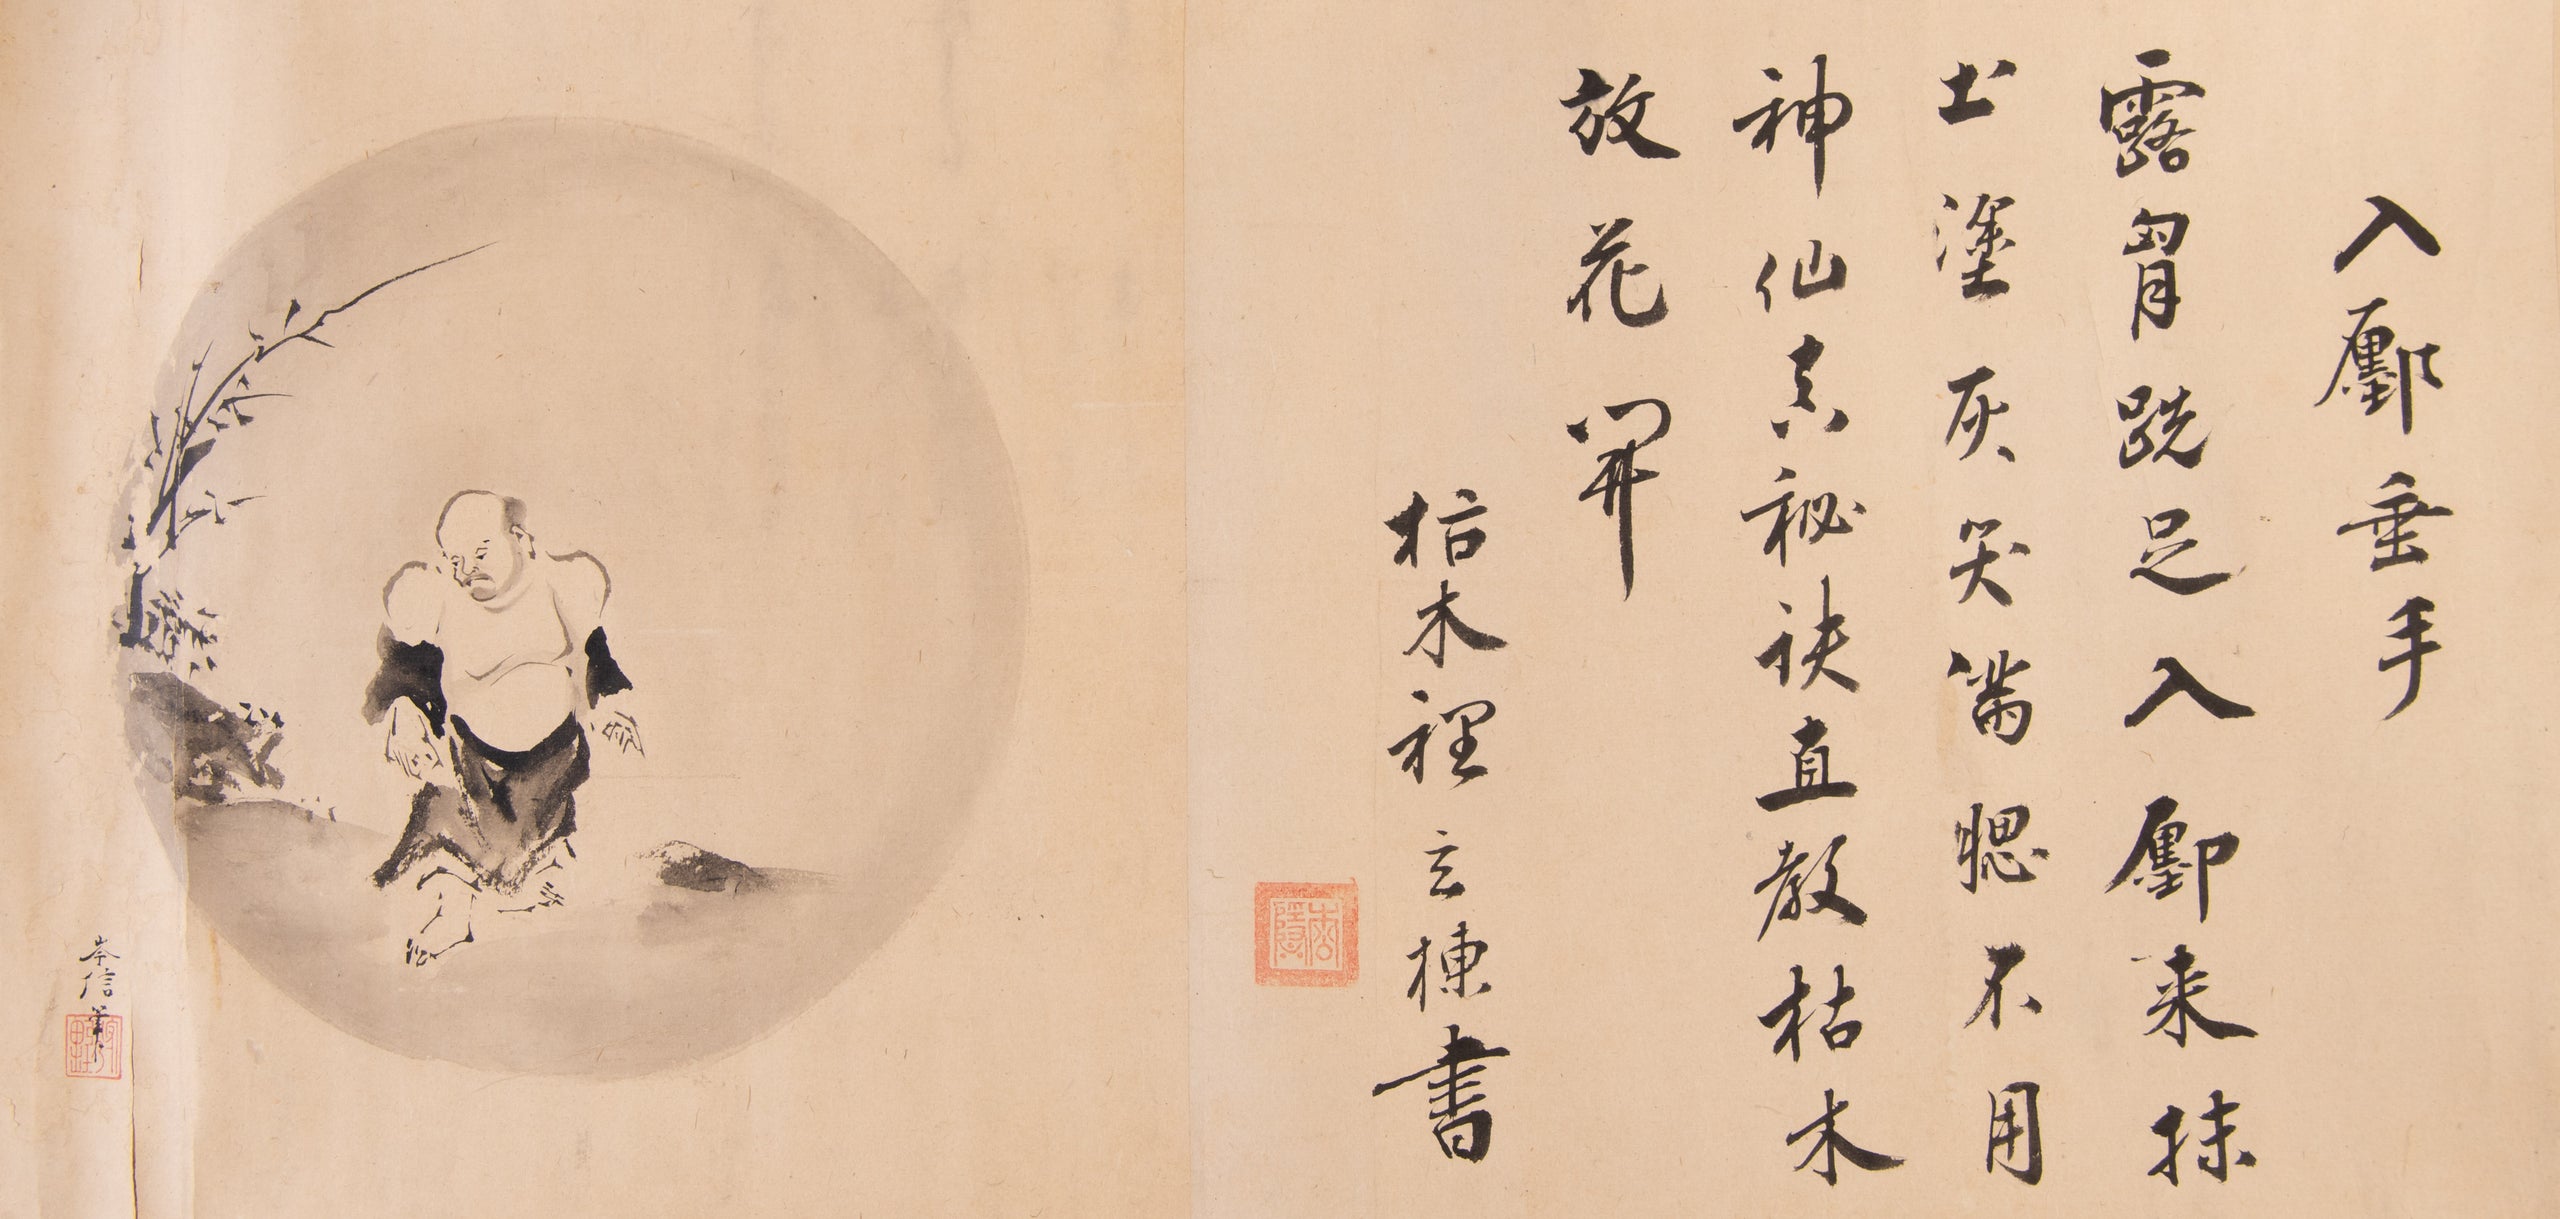 入鄽垂手
露胷跣足入鄽来抹
土塗灰笑滿腮不用
神仙真祕訣直教枯木
放花開
枯木裡玄棟書
岑信筆